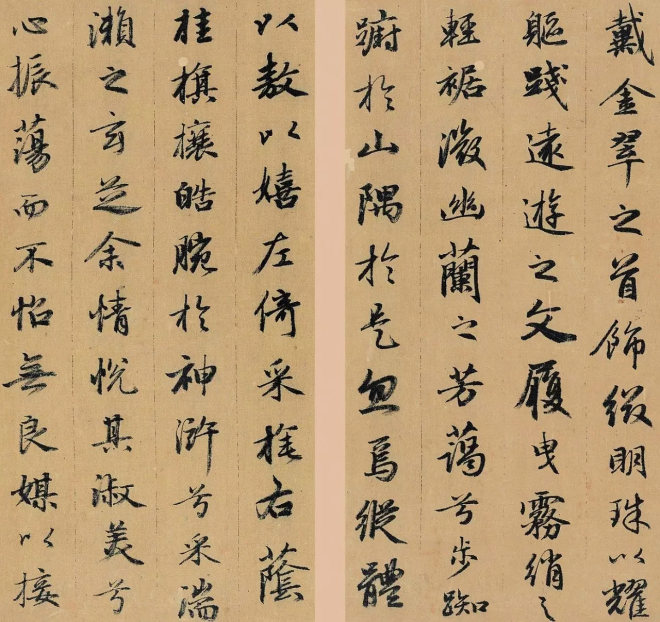 戴金翠之首飾綴明珠以耀
軀踐遠遊之文履曳霧綃之
輕裾微幽蘭之芳藹兮步踟
躕於山隅於是忽焉縱體
以敖以嬉左倚采旄右蔭
桂旗攘皓腕於神滸兮采湍
瀨之玄芝余情悅其淑美兮
心振蕩而不怡無良媒以接